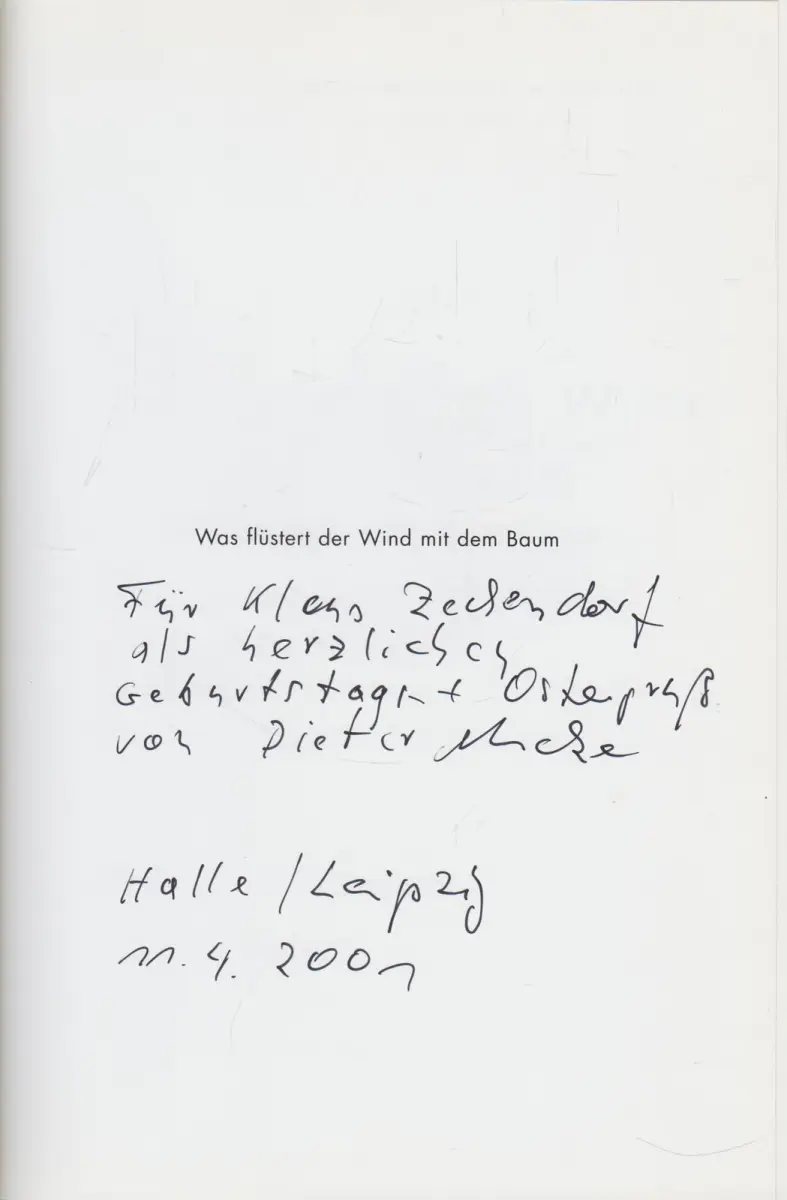 Was flüstert der Wind mit dem Baum
Für Klaus Zechendorf
als herzlichen
Geburtstags + Ostergruß
von Dieter Mucke
Halle / Leipzig
11. 4. 2001